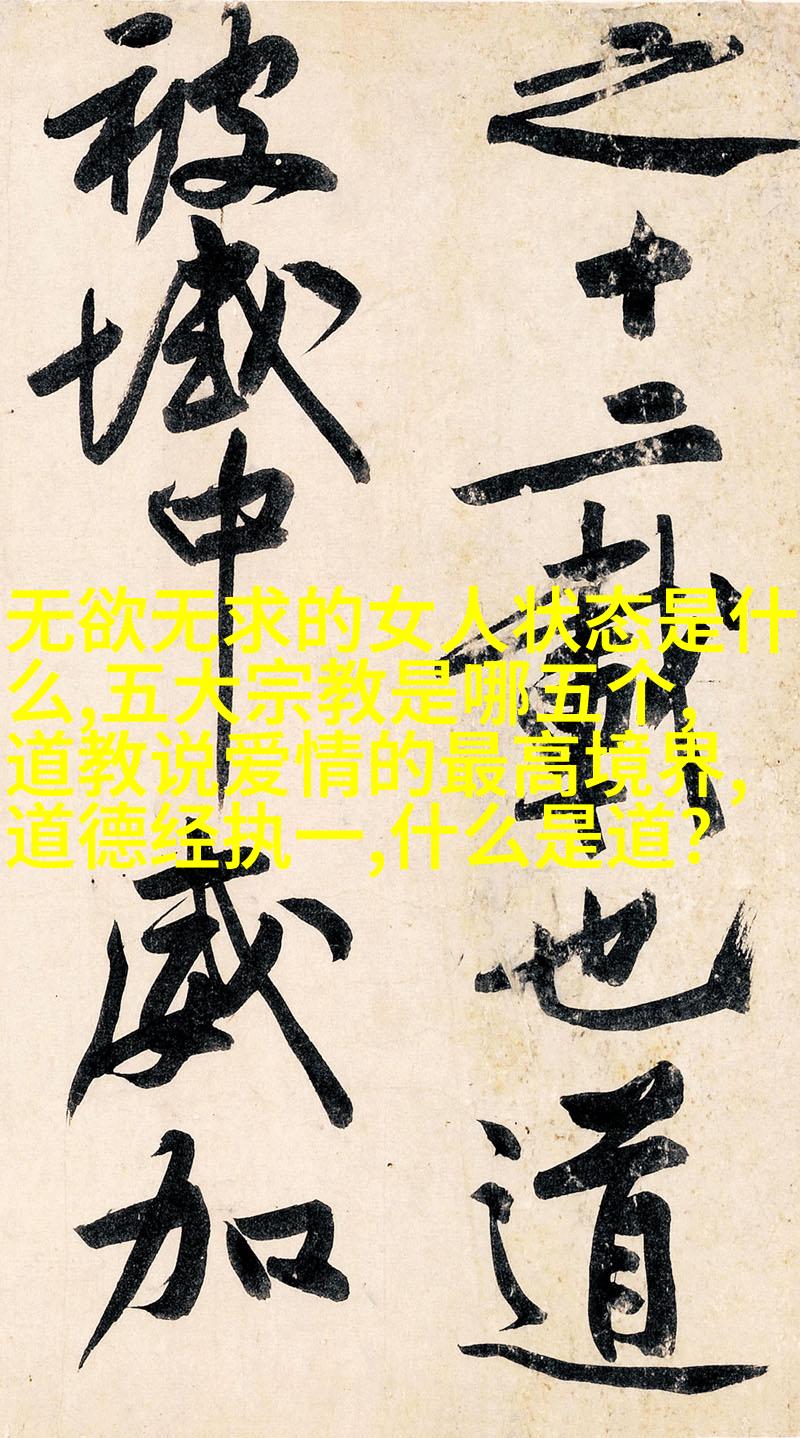 之十二載也道
被域中威加
无欲无求的女人状态是什
么,五大宗教是哪五个,
道教说爱情的最高境界,
道德经执一,什么是道?